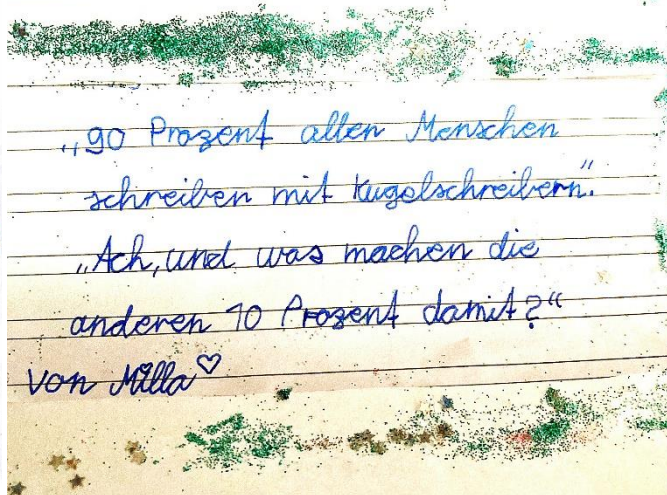 „90 Prozent aller Menschen
schreiben mit Kugelschreibern."
„Ach, und was machen die
anderen 10 Prozent damit?“
von Milla ♡